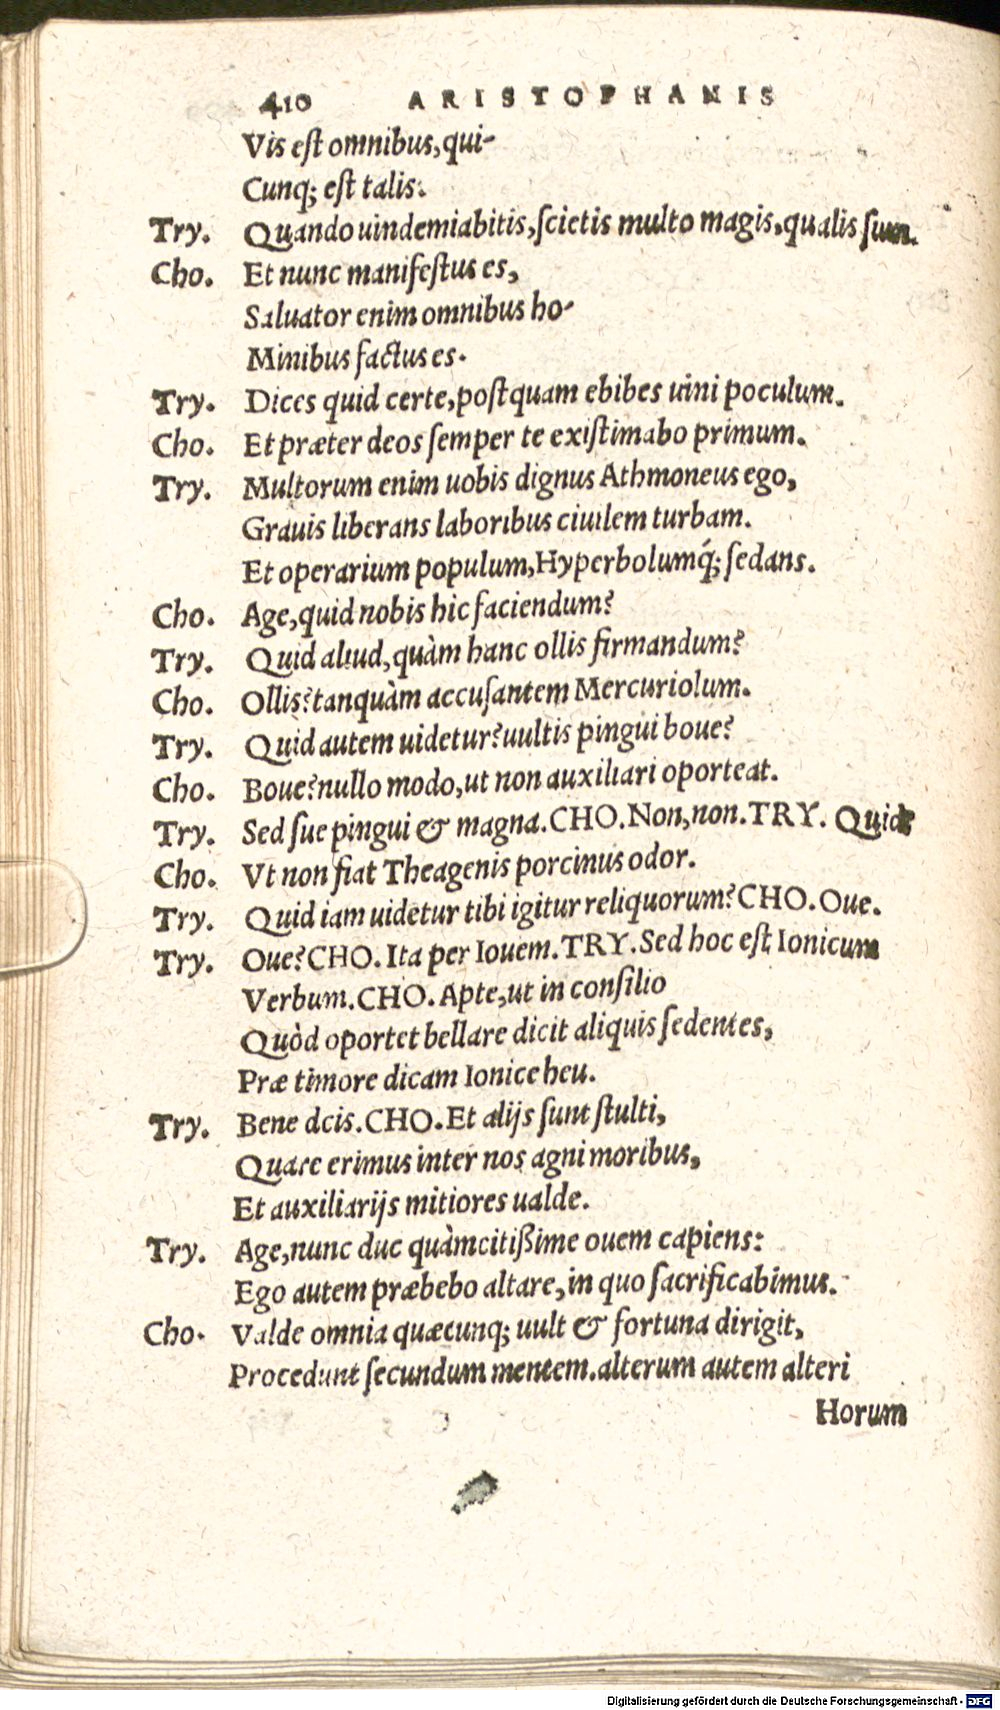 410 ARISTOPHANIS
Vis est omnibus, qui-
Cunq; est talis.
Try. Quando uindemiabitis, scietis multo magis, qualis sum.
Cho. Et nunc manifestus es,
Saluator enim omnibus ho-
Minibus factus es.
Try. Dices quid certe, postquam ebibes uini poculum.
Cho. Et præter deos semper te existimabo primum.
Try. Multorum enim uobis dignus Athmoneus ego,
Grauis liberans laboribus ciuilem turbam.
Et operarium populum, Hyperbolumq́; sedans.
Cho. Age, quid nobis hic faciendum?
Try. Quid aliud, quàm hanc ollis firmandum?
Cho. Ollis? tanquàm accusantem Mercuriolum.
Try. Quid autem uidetur? uultis pingui boue?
Cho. Boue? nullo modo, ut non auxiliari oporteat.
Try. Sed sue pingui & magna. CHO. Non, non. TRY. Quid?
Cho. Vt non fiat Theagenis porcinus odor.
Try. Quid iam uidetur tibi igitur reliquorum? CHO. Oue.
Try. Oue? CHO. Ita per Iouem. TRY. Sed hoc est Ionicum
Verbum. CHO. Apte, ut in consilio
Quòd oportet bellare dicit aliquis sedentes,
Præ timore dicam Ionice heu.
Try. Bene dcis. CHO. Et alijs sunt stulti,
Quare erimus inter nos agni moribus,
Et auxiliarijs mitiores ualde.
Try. Age, nunc duc quàmcitißime ouem capiens:
Ego autem præbebo altare, in quo sacrificabimus.
Cho. Valde omnia quæcunq; uult & fortuna dirigit,
Procedunt secundum mentem. alterum autem alteri
Horum
Digitalisierung gefördert durch die Deutsche Forschungsgemeinschaft - DFG